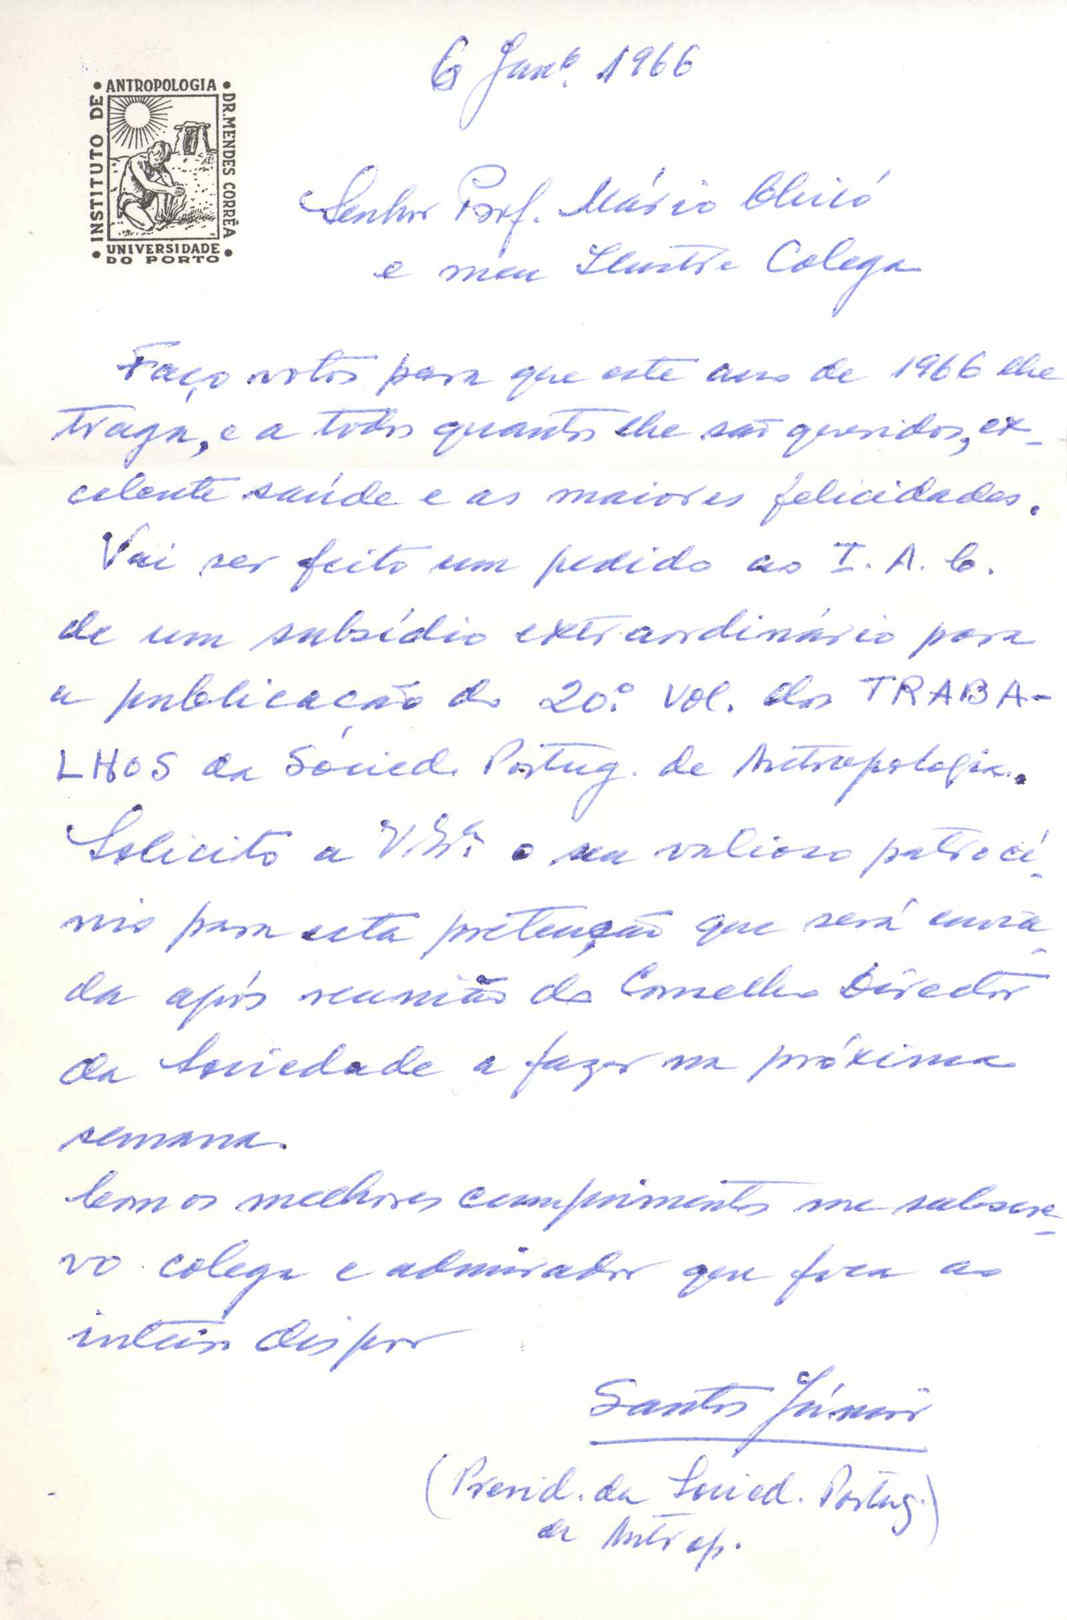 INSTITUTO DE ANTROPOLOGIA DR. MENDES CORRÊA
UNIVERSIDADE
DO PORTO
6 Janº. 1966
Senhor Prof. Mário Chicó
e meu Ilustre Colega
Faço votos para que este ano de 1966 lhe
traga, e a todos quantos lhe são queridos, ex-
celente saúde e as maiores felicidades.
Vai ser feito um pedido ao I. A. C.
de um subsídio extraordinário para
a publicação do 20.º vol. dos TRABA-
LHOS da Socied. Portug. de Antropologia.
Solicito a V. Exª. o seu valioso patrocí-
nio para esta pretenção que será envia-
da após reunião do Conselho Director
da Sociedade a fazer na próxima
semana.
Com os melhores cumprimentos me subscre-
vo colega e admirador que fica ao
inteiro dispor
Santos Júnior
(Presid. da Socied. Portug.)
de Antrop.